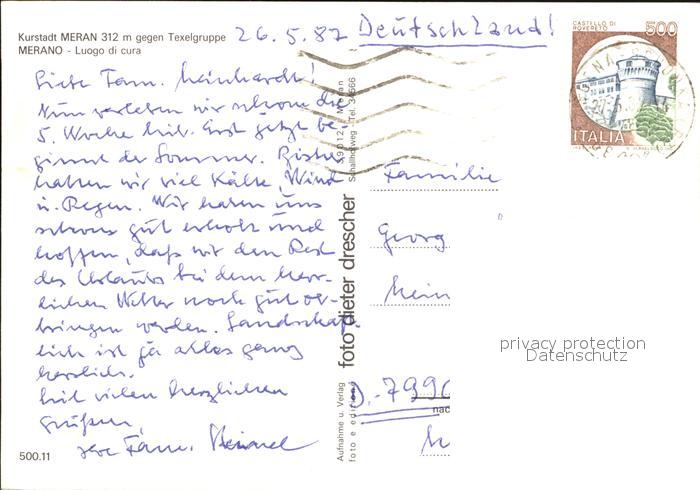 Kurstadt MERAN 312 m gegen Texelgruppe
MERANO - Luogo di cura
26.5.87 Deutschland!
CASTELLO DI
ROVERETO
500
ITALIA
Liebe Fam. Meinhardt!
Nun verleben wir schon die
5. Woche hier. Erst jetzt be-
ginnt der Sommer. Bisher
hatten wir viel Kälte, Wind
u. Regen. Wir haben uns
schon gut erholt und
hoffen, daß wir den Rest
des Urlaubs bei dem herr-
lichen Wetter noch gut ver-
bringen werden. Landschaft-
lich ist ja alles ganz
herrlich.
Mit vielen herzlichen
Grüßen,
Ihre Fam.
500.11
foto dieter drescher
39012 Meran
Schallhofweg - Tel. 34566
Aufnahme u. Verlag
foto e edizione
Familie
Georg
Mein
D.-7990
nac
privacy protection
Datenschutz